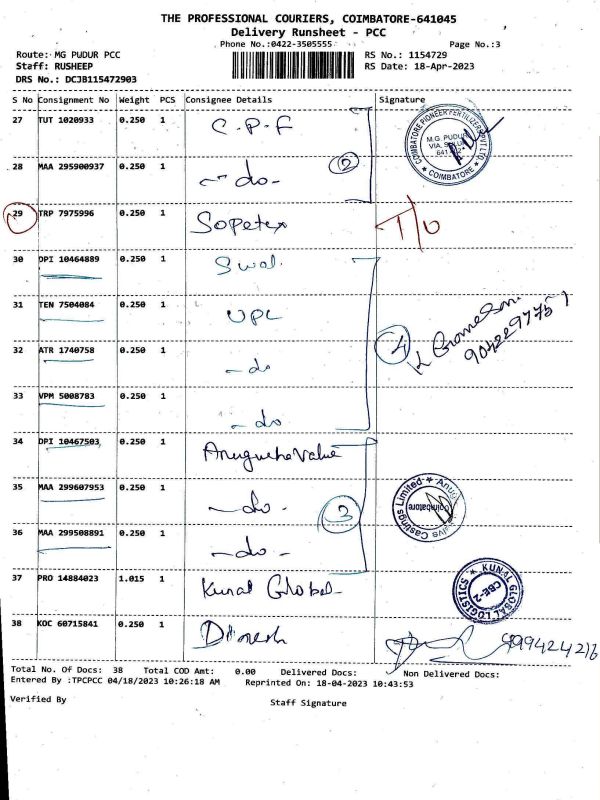 THE PROFESSIONAL COURIERS, COIMBATORE-641045
Delivery Runsheet - PCC
Phone No.:0422-3505555
Page No.:3
Route: MG PUDUR PCC
RS No.: 1154729
Staff: RUSHEEP
RS Date: 18-Apr-2023
DRS No.: DCJB115472903
S No Consignment No Weight PCS Consignee Details Signature
27 TUT 1020933 0.250 1 C.P.F
COIMBATORE PIONEER FERTILIZERS PVT LTD.
M.G. PUDUR
COIMBATORE
28 MAA 295900937 0.250 1 - do - 2
29 TRP 7975996 0.250 1 Sopetex T/O
30 DPI 10464889 0.250 1 Swal
31 TEN 7504084 0.250 1 UPL
4
32 ATR 1740758 0.250 1 - do
33 VPM 5008783 0.250 1 - do
34 DPI 10467503 0.250 1
35 MAA 299607953 0.250 1 - do -
3
Castings Limited
Coimbatore
36 MAA 299508891 0.250 1 - do -
37 PRO 14884023 1.015 1 Kunal Global
KUNAL GLOBAL LOGISTICS
CBE-2
38 KOC 60715841 0.250 1 Dinesh
Total No. Of Docs: 38 Total COD Amt: 0.00 Delivered Docs: Non Delivered Docs:
Entered By :TPCPCC 04/18/2023 10:26:18 AM Reprinted On: 18-04-2023 10:43:53
Verified By
Staff Signature